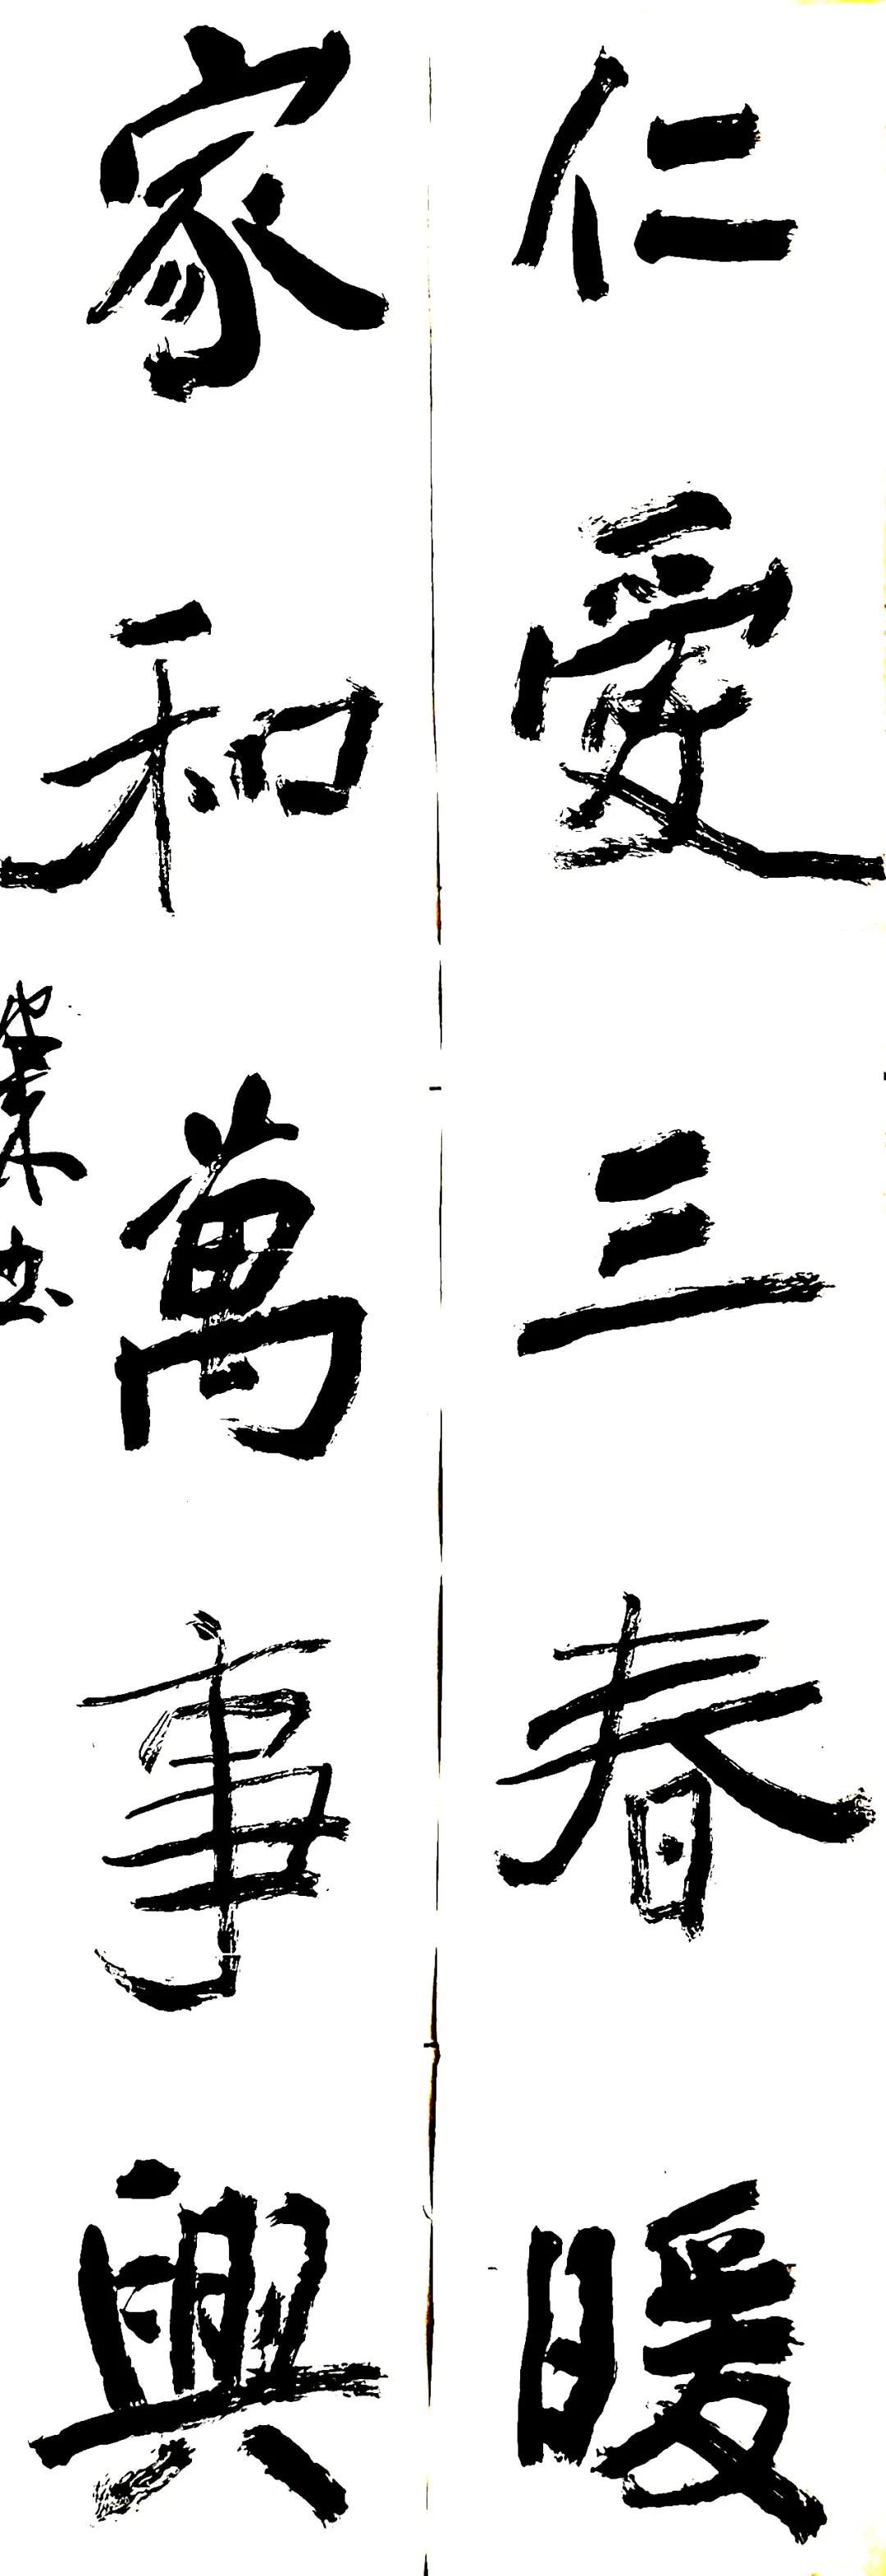 仁愛三春暖
家和萬事興